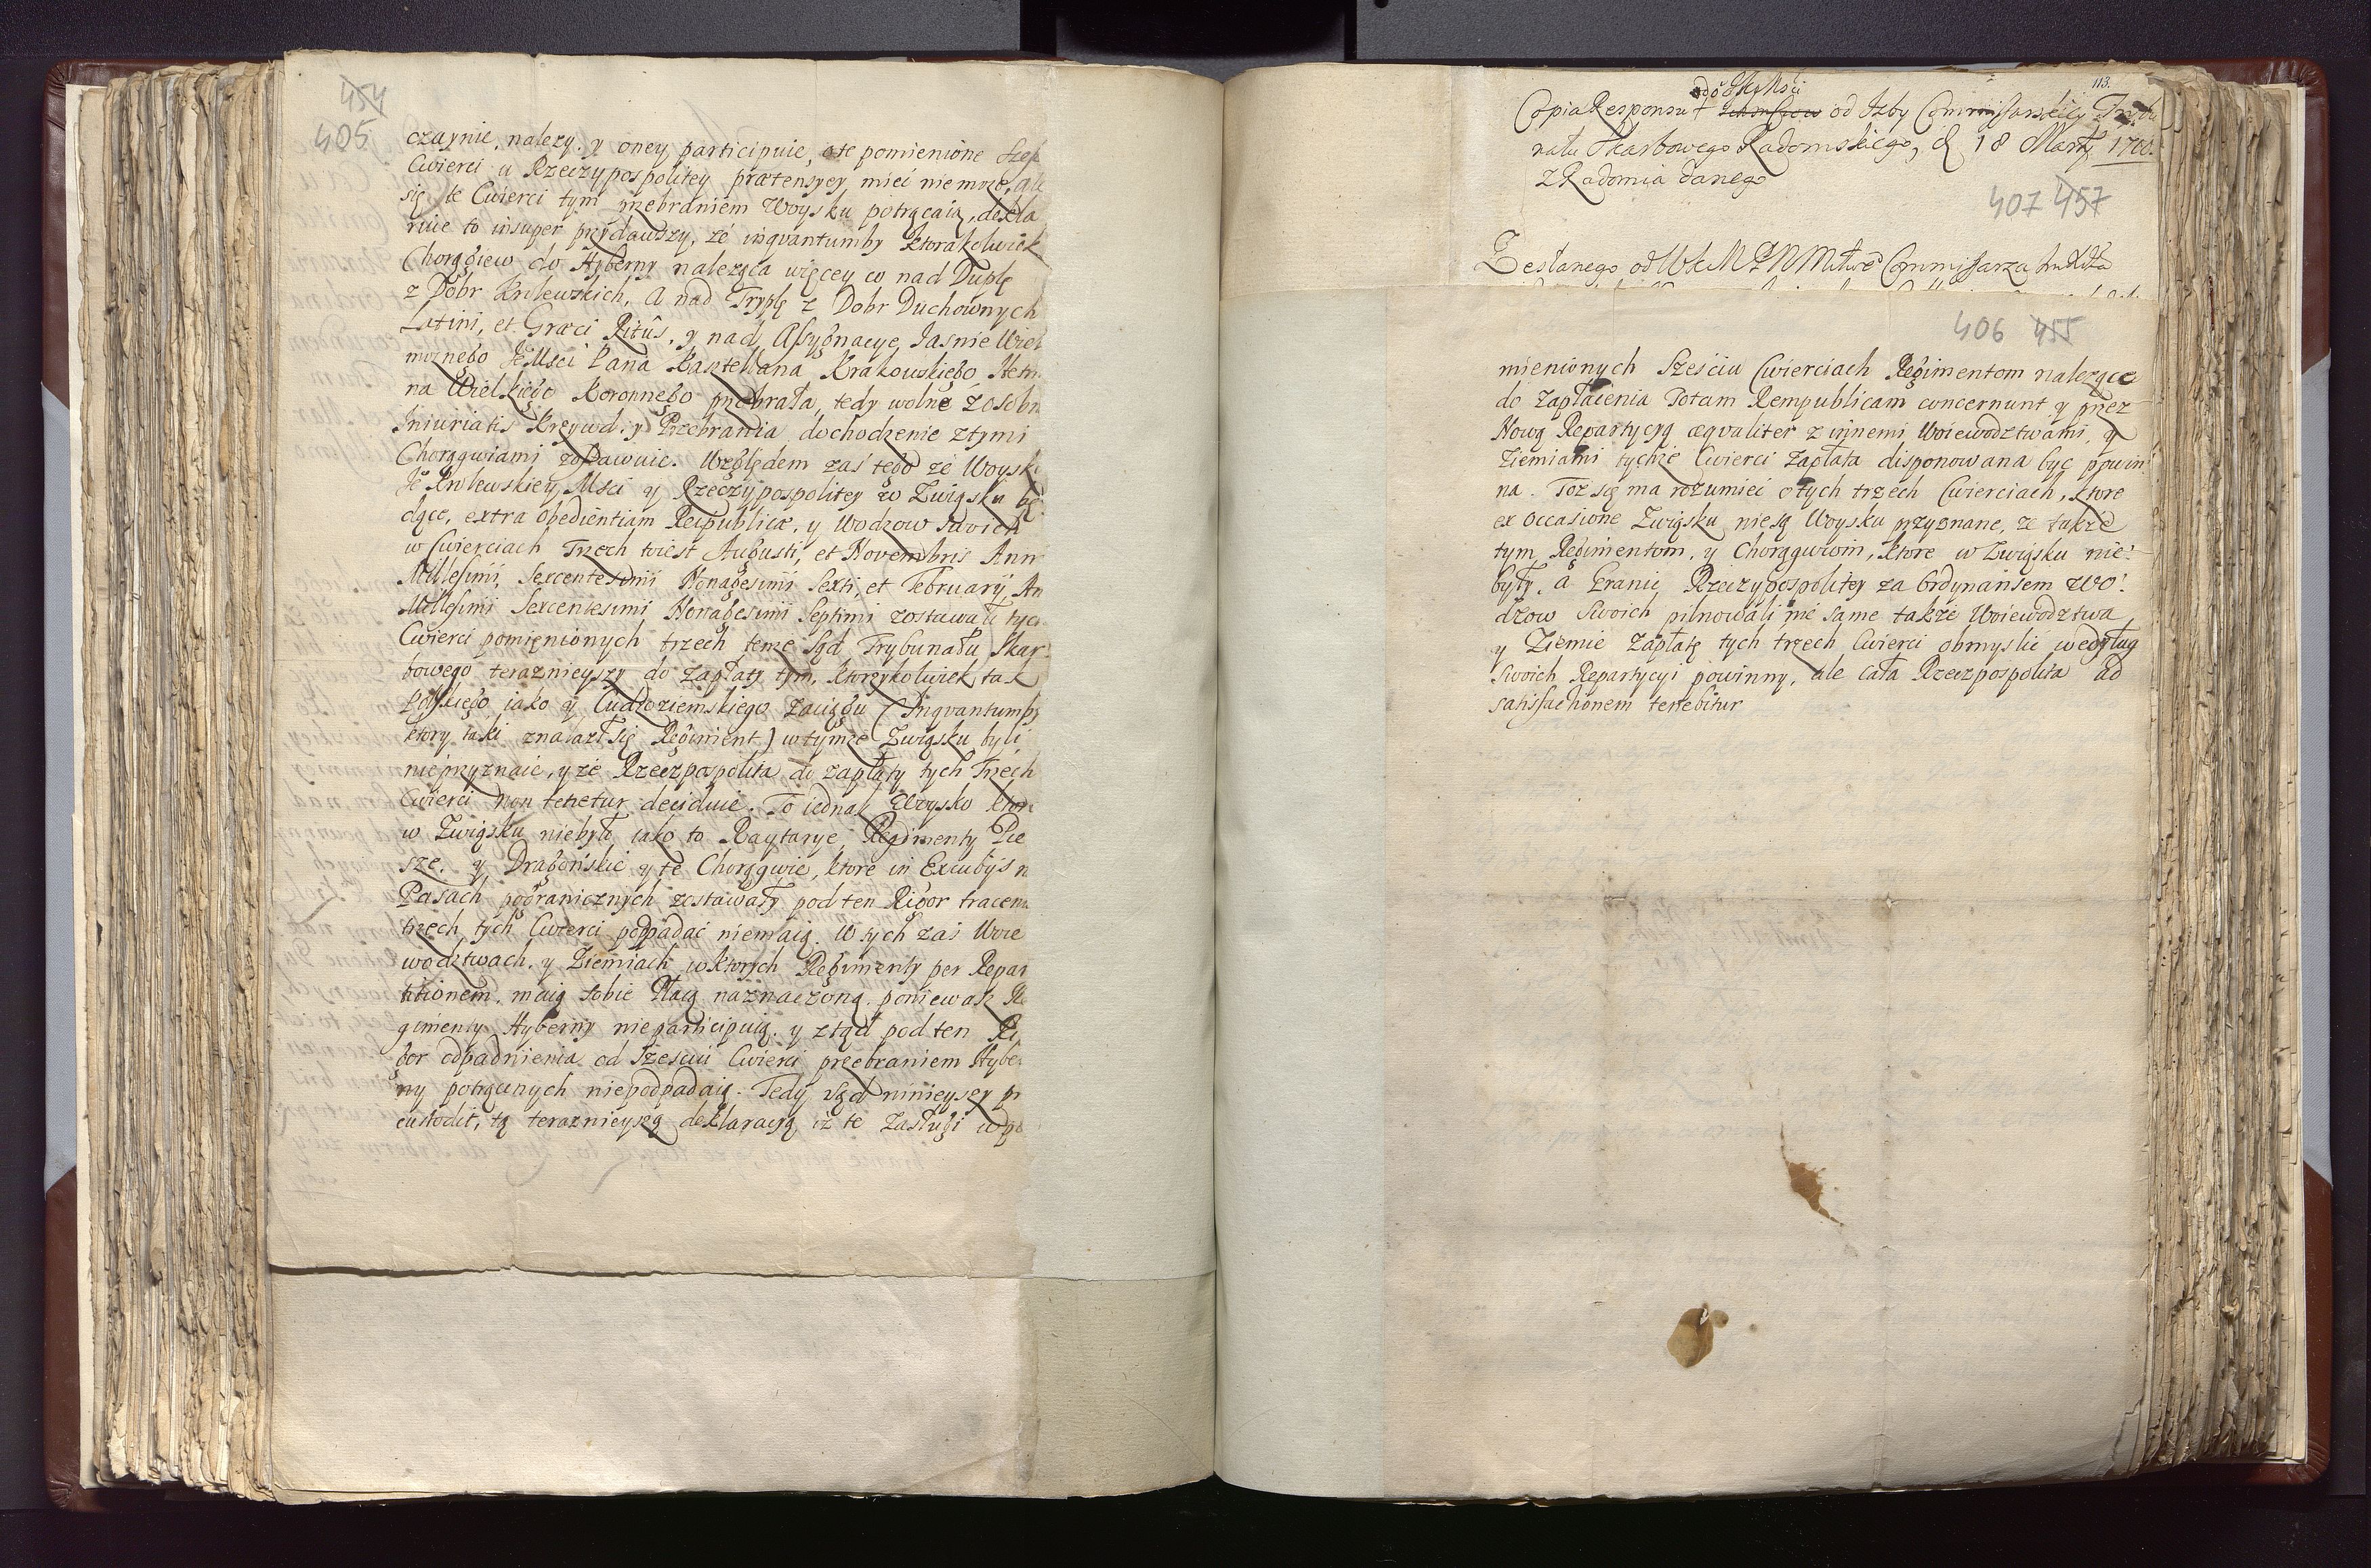 454
405
czaynie, nalezy. y oney participuie, o te pomienione Szes
Cwierci u Rzeczypospolitey prætensyey mieć niemoze, ale
się te Cwierci tym przebraniem Woysku potrącaią, dekla
ruie to insuper przydawszy, ze inqvantumby ktorakolwiek
Chorągiew do Hyberny naleząca więcey co nad Duplę
z Dobr Krolewskich, A nad Tryplę z Dobr Duchownych
Latini, et Græci Ritûs, y nad Assygnacye Jasnie Wiel
moznego JeMsci Pana Kasztellana Krakowskiego Hetm
na Wielkiego Koronnego przebrała, tedy wolne zosobn
Iniuriatis Krzywd. y Przebrania dochodzenie ztymi
Chorągwiami zostawuie. Względem zas tego ze Woysk
Je Krolewskiey Msci y Rzeczypospolitey w Związku bę
dące, extra obedientiam Reipublicæ, y Wodzow swoich
w Cwierciach Trzech to iest Augusti, et Novembris Ann
Millesimi, Sexcentesimi Nonagesimi Sexti, et February, An
Millesimi Sexcentesimi Nonagesimi Septimi zostawali tych
Cwierci pomienionych trzech teme Sąd Trybunału Skar
bowego teraznieyszy do zapłaty tym, ktorzykolwiek tak
Polskiego iako y Cudzoziemskiego zaciągu (Inqvantumby
ktory taki znalazł się Regiment) wtymze Związku byli
nieprzyznaie, y ze Rzeczpospolita do zapłaty tych Trzech
Cwierci non tenetur deciduie. To iednak Woysko ktore
w Związku niebyło iako to Raytarye, Regimenty Pie
sze. y Dragońskie y te Chorągwie, ktore in Excubijs n
Pasach pogranicznych zostawały pod ten Rigor tracenia
trzech tych Cwierci podpadać niemaią. W tych zas Woie
wodztwach. y Ziemiach wktorych Regimenty per Repar
titionem. maią sobie Płacą naznaczoną. poniewaz Re
gimenty Hyberny nieparticipuią. y ztąd pod ten Ri
gor odpadnienia od szesciu Cwierci przebraniem Hyber
ny potrąconych niepodpadaią. Tedy Sąd ninieyszy pr
custodit, tą teraznieyszą deklaracyą iz te Zasługi wpo
113.
od JKMsci
Copia Responsu od Izby Commissarskiey Trybu
nału Skarbowego Radomskiego, d 18 Marty 1700.
z Radomia danego
407 457
Zesłanego od WKM PNMłwo Commissarza
406 455
mienionych Sześciu Cwierciach Regimentom nalezące
do zapłacenia Totam Rempublicam concernunt y przez
Nową Repartycyą æqvaliter z innemi Woiewodztwami, y
Ziemiami tychze Cwierci zapłata disponowana być powin
na. Toz się ma rozumieć o tych trzech Cwierciach, ktore
ex occasione Związku niesą Woysku przyznane, ze także
tym Regimentom, y Chorągwiom, ktore w Związku nie
były, a Granic Rzeczypospolitey za Ordynansem Wo
dzow Swoich pilnowali nie same także Woiewodztwa
y Ziemie zapłatę tych trzech Cwierci obmyslić według
Swoich Repartycyi powinny, ale cała Rzeczpospolita ad
satisfactionem tenebitur